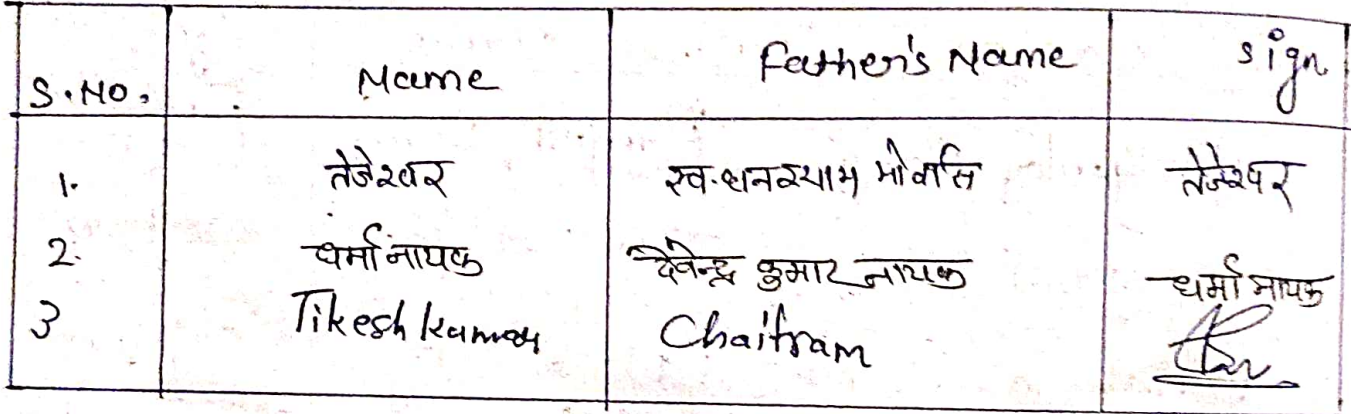 S.NO. Name Father's Name sign
1. तेजेश्वर स्व. धनश्याम मोवासि तेजेश्वर
2. धर्मा नायक देवेन्द्र कुमार नायक धर्मा नायक
3 Tikesh Kumar Chaitram